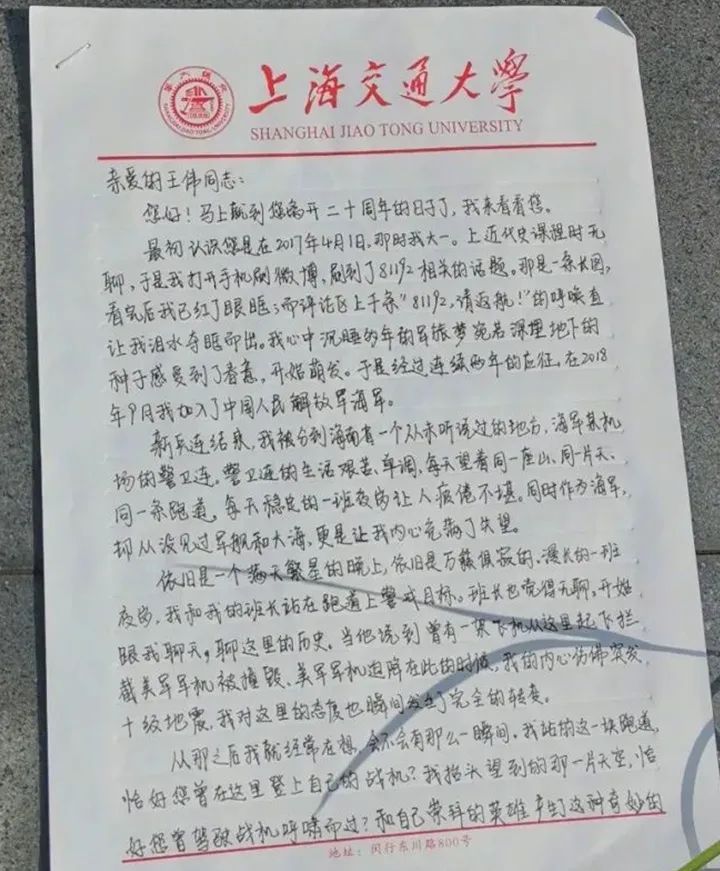 上海交通大学
SHANGHAI JIAO TONG UNIVERSITY
SHANGHAI JIAO TONG UNIVERSITY
亲爱的王伟同志：
您好！马上就到您离开二十周年的日子了，我来看看您。
最初认识您是在2017年4月1日，那时我大一。上近代史课程时无
聊，于是我打开手机刷微博，刷到了81192相关的话题。那是一条长图，
看完后我已红了眼眶；而评论区上千条“81192，请返航！”的呼唤直
让我泪水夺眶而出。我心中沉睡多年的军旅梦宛若深埋地下的
种子感受到了春意，开始萌发。于是经过连续两年的应征，在2018
年9月我加入了中国人民解放军海军。
新兵连结束，我被分到海南省一个从未听说过的地方，海军某机
场的警卫连。警卫连的生活艰苦、单调，每天望着同一座山、同一片天、
同一条跑道，每天稳定的一班夜岗让人疲倦不堪。同时作为海军，
却从没见过军舰和大海，更是让我内心充满了失望。
依旧是一个满天繁星的晚上，依旧是万籁俱寂的、漫长的一班
夜岗，我和我的班长站在跑道上警戒目标。班长也觉得无聊，开始
跟我聊天，聊这里的历史。当他说到曾有一架飞机从这里起飞拦
截美军军机被撞毁、美军军机迫降在此的时候，我的内心仿佛突发
十级地震，我对这里的态度也瞬间发生了完全的转变。
从那之后我就经常在想，会不会有那么一瞬间，我站的这一块跑道，
恰好您曾在这里登上自己的战机？我抬头望到的那一片天空，恰
好您曾驾驶战机呼啸而过？和自己崇拜的英雄产生了这种奇妙的
地址：闵行东川路800号